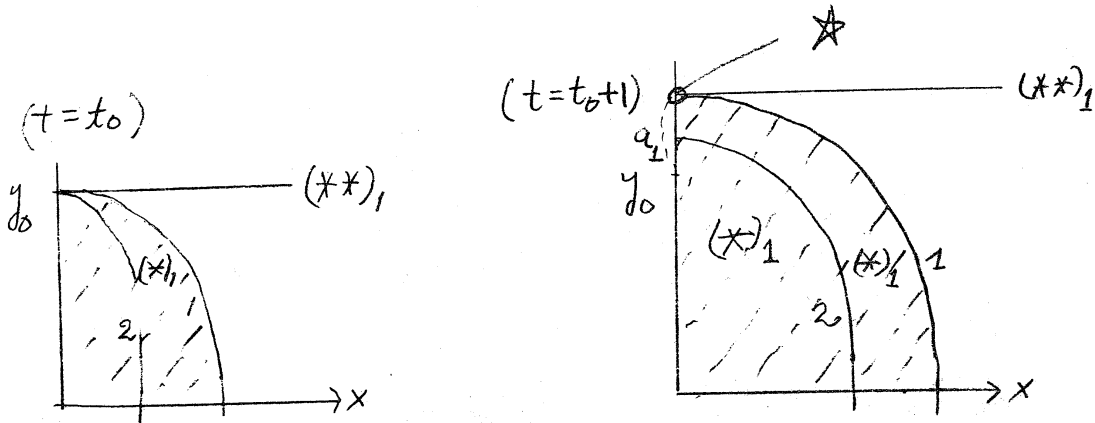 (t=t₀)
y₀
(**)₁
(*)₁
2
x
☆
(t=t₀+1)
(**)₁
a₁
y₀
(*)₁
(*)₁
1
2
x